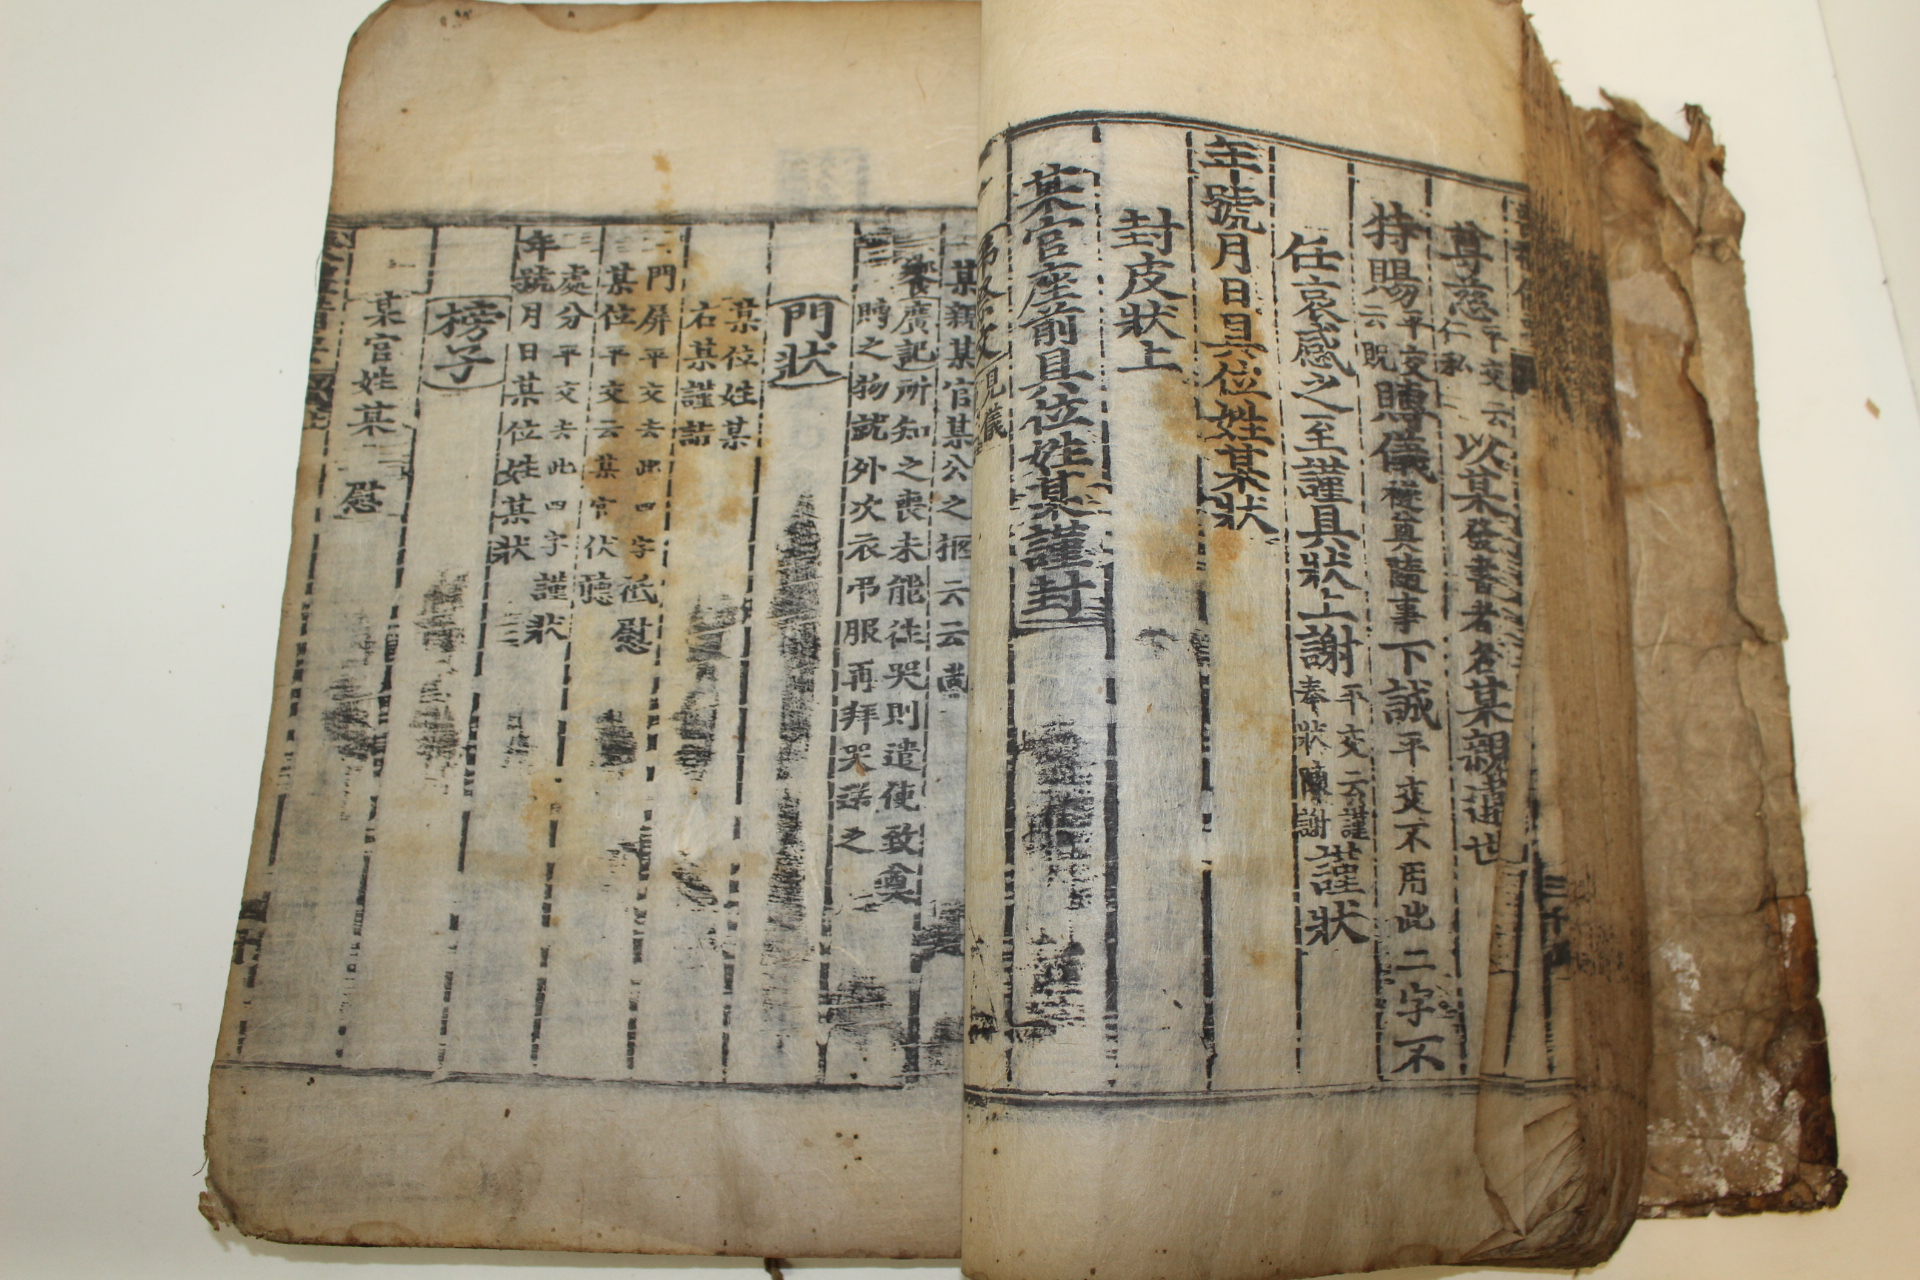 尊慈平交云仁私以某發書者名某親違世
特賜平交云貺賻儀襚奠隨事下誠平交不用此二字不
任哀感之至謹具狀上謝平交云謹奉狀陳謝謹狀
年號月日具位姓某狀
封皮狀上
某官座前具位姓某謹封
某親某官某公之柩云云尚
饗廣記所知之喪未能往哭則遣使致奠
賻之物就外次衣弔服再拜哭送之
門狀
某位姓某
右某謹詣
門屏平交去此四字祗慰
某位平交云某官伏聽
處分平交去此四字謹狀
年號月日某位姓某狀
榜子
某官姓某 慰